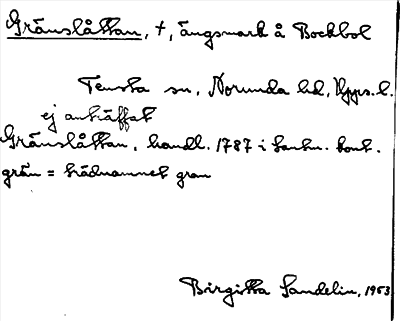 Gränslåttan, †, ängsmark å Bockbol
Tensta sn, Norunda hd, Upps. l.
ej anträffat
Gränslåttan, handl. 1787 i lantm. kont.
grän = trädnamnet gran
Birgitta Sandelin, 1953